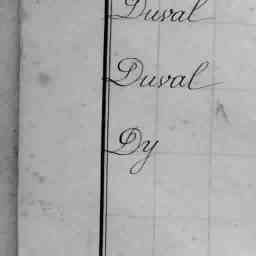 Duval
Duval
Dy